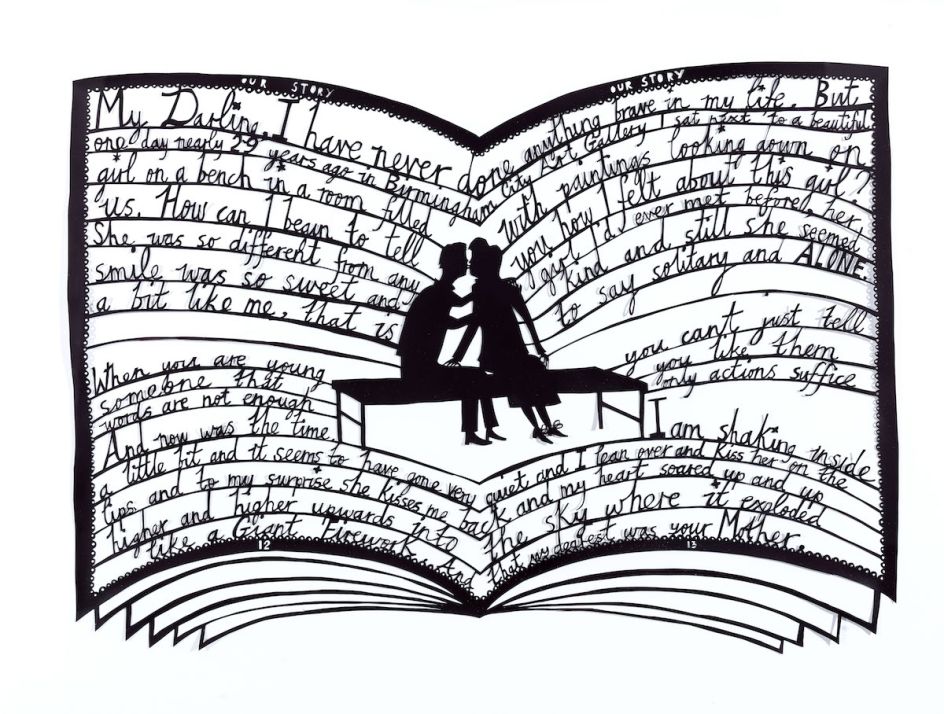 OUR STORY OUR STORY
My Darling, I have never done anything brave in my life. But,
one day nearly 29 years ago in Birmingham City Art Gallery I sat next to a beautiful
girl on a bench in a room filled with paintings looking down on
us. How can I begin to tell you how I felt about this girl?
She was so different from any girl I'd ever met before, her
smile was so sweet and kind and still she seemed
a bit like me, that is to say solitary and ALONE.
When you are young you can't just tell
someone that you like them
words are not enough only actions suffice
And now was the time. I am shaking inside
a little bit and it seems to have gone very quiet and I lean over and kiss her on the
lips and to my surprise she kisses me back and my heart soared up and up
higher and higher upwards into the sky where it exploded
like a Giant Firework. And that my dearest was your Mother.
12 13